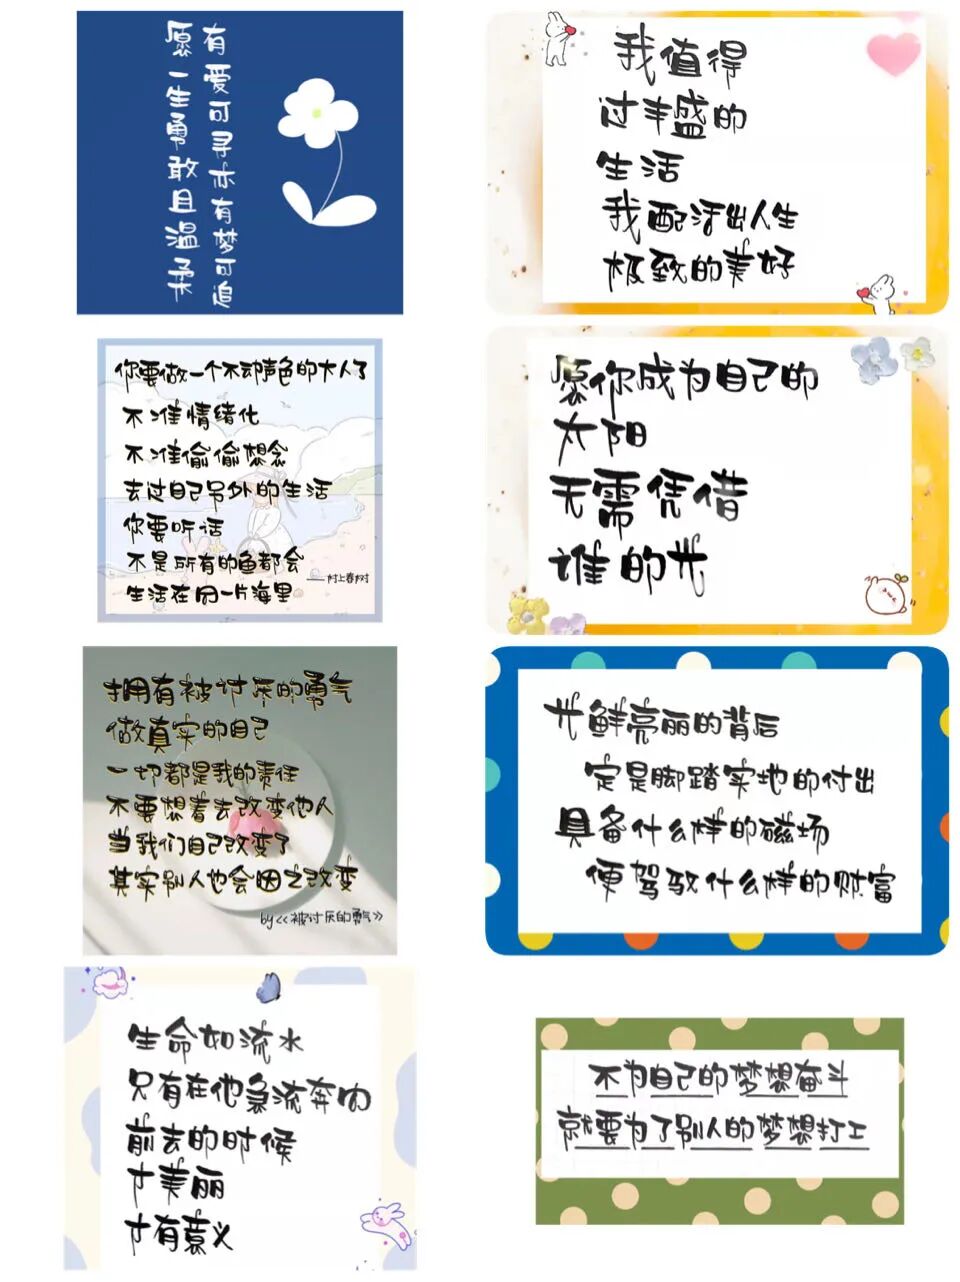 有爱可寻亦有梦可追
愿一生勇敢且温柔
我值得
过丰盛的
生活
我配活出人生
极致的美好
你要做一个不动声色的大人了
不准情绪化
不准偷偷想念
去过自己另外的生活
你要听话
不是所有的鱼都会
生活在同一片海里
——村上春树
愿你成为自己的
太阳
无需凭借
谁的光
拥有被讨厌的勇气
做真实的自己
一切都是我的责任
不要想着去改变他人
当我们自己改变了
其实别人也会因之改变
by《被讨厌的勇气》
光鲜亮丽的背后
定是脚踏实地的付出
具备什么样的磁场
便驾驭什么样的财富
生命如流水
只有在他急流奔向
前去的时候
才美丽
才有意义
不为自己的梦想奋斗
就要为了别人的梦想打工